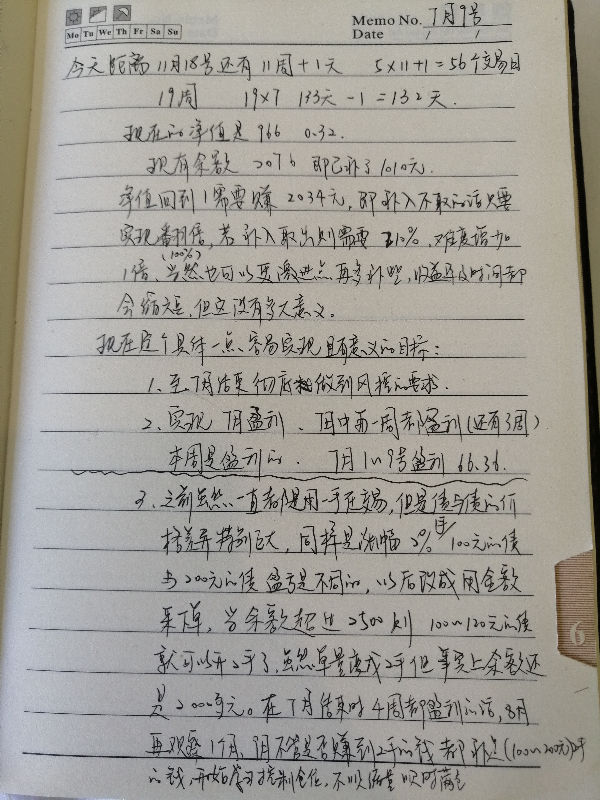 Memo No. 7月9号
Mo Tu We Th Fr Sa Su
Date / /
今天距离11月18号还有11周+1天 5×11+1=56个交易日
19周 19×7 133天-1=132天.
现在的净值是966 0.32.
现有余额 2076 即已补了1010元.
净值回到1需要赚2034元,即补入不取的话只要
实现翻倍,若补入取出则需要210%,难度增加
(100%)
1倍、当然也可以更激进点再多补些,收益率及时间都
会缩短,但这没有多大意义。
现在定个具体一点容易实现且有意义的目标:
1、至7月结束彻底做到风控的要求.
2、实现7月盈利、7月中每一周都盈利(还有3周)
本周是盈利的. 7月1~9号盈利66.36.
3、之前虽然一直都是用一手在交易,但是债与债的价
格差异特别巨大,同样是涨幅2%1手100元的债
与200元的债盈亏是不同的,以后改成用金额
来下单,当余额超过2500则100~120元的债
就可以开2手了,虽然单量变成2手但事实上余额还
是2000多元。在7月结束时4周都盈利的话,8月
再观察1个月,9月不管是否赚到2手的钱都补点(100~200元)2手
的钱,开始学习控制仓位,